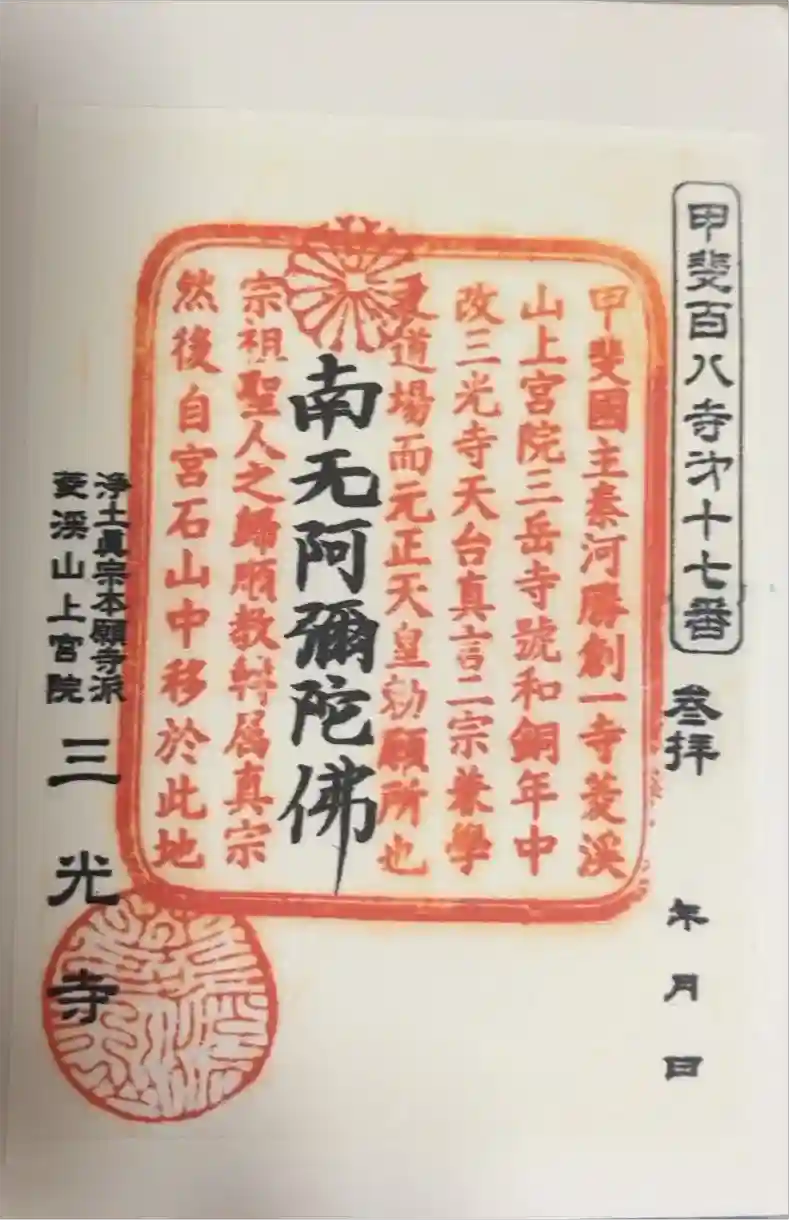 甲斐百八寺才十七番
参拝
年月日
甲斐國主秦河勝創一寺菱溪
山上宮院三岳寺號和銅年中
改三光寺天台真言二宗兼學
道場而元正天皇勅願所也
南无阿彌陀佛
宗祖聖人之歸願教轉属真宗
然後自宮石山中移於此地
浄土真宗本願寺派
菱溪山上宮院
三光寺